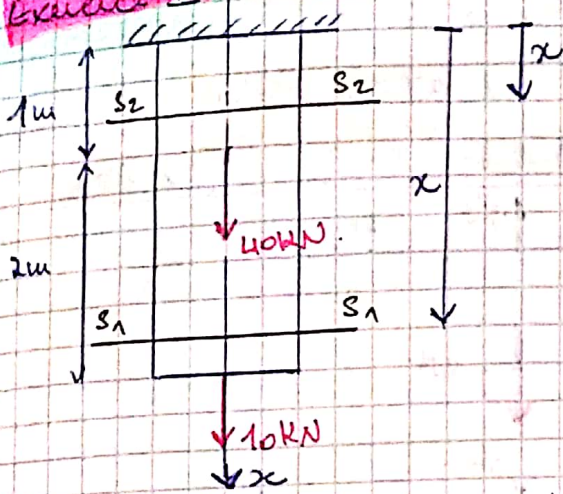 Exercice
x
1m
S2
S2
x
40KN.
2m
S1
S1
10KN
x